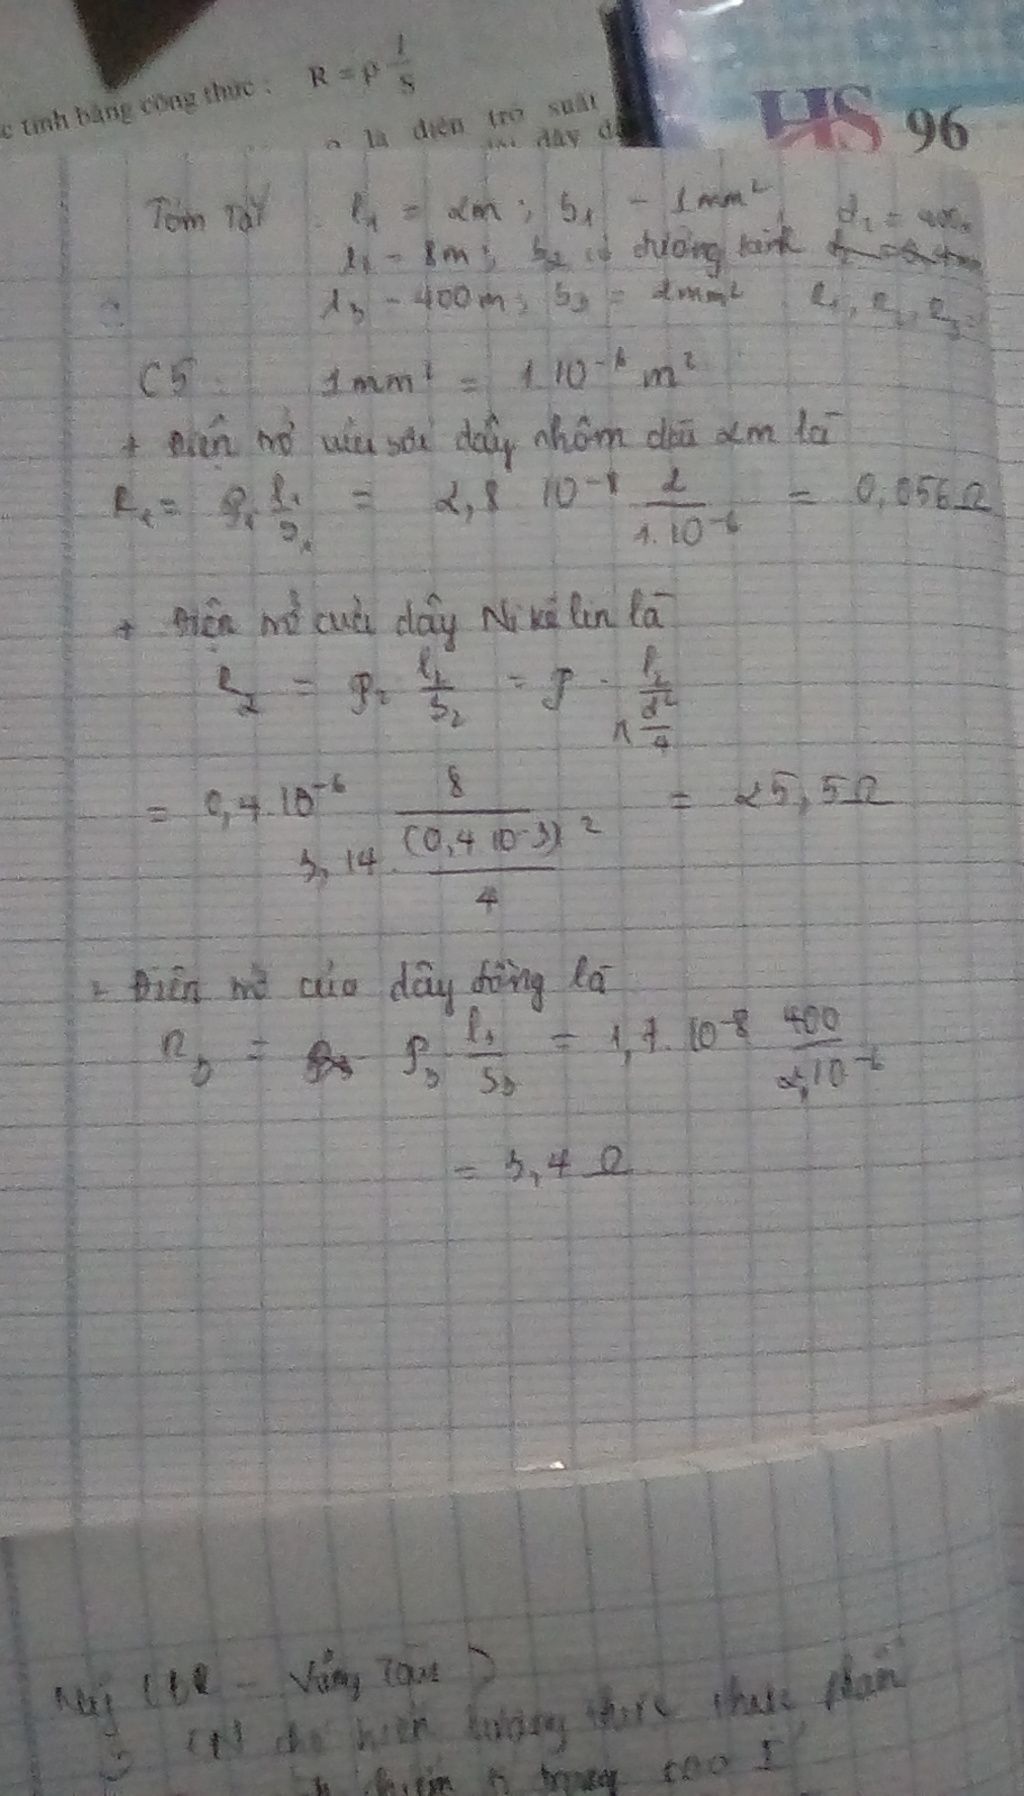 tính bằng công thức : R = ρ l/S
là điện trở suất
HS 96
Tóm tắt l₁ = 2m ; S₁ = 1mm²
l₂ = 8m ; S₂ có đường kính
l₃ = 400m ; S₃ = 2mm² R₁, R₂, R₃ =
C5 : 1mm² = 1.10⁻⁶ m²
+ Điện trở của sợi dây nhôm dài 2m là
R₁ = ρ₁ l₁/S₁ = 2,8 10⁻⁸ 2/1.10⁻⁶ = 0,056Ω
+ Điện trở của dây Nikêlin là
R₂ = ρ₂ l₂/S₂ = ρ . l₂/π d²/4
= 0,4.10⁻⁶ 8/3,14.(0,4 10⁻³)²/4 = 25,5Ω
- Điện trở của dây đồng là
R₃ = ρ₃ l₃/S₃ = 1,7.10⁻⁸ 400/2.10⁻⁶
= 3,4 Ω
Vũng Tàu )
hiện tượng khúc